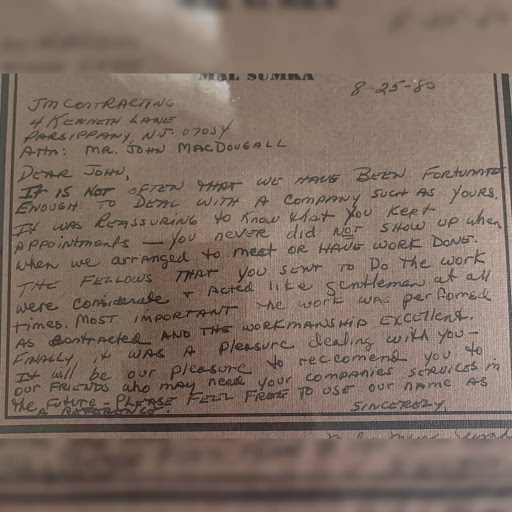 MAL SUMKA
8-25-80
JM CONTRACTING
4 KENNETH LANE
PARSIPPANY, N.J. 07054
Attn: MR. JOHN MACDOUGALL
DEAR JOHN,
IT IS NOT OFTEN THAT WE HAVE BEEN FORTUNATE
ENOUGH TO DEAL WITH A COMPANY SUCH AS YOURS.
IT WAS REASSURING to know that you kept
APPOINTMENTS — YOU never did NOT SHOW UP when
when we arranged to meet OR HAVE WORK DONE.
THE FELLOWS THAT YOU SENT TO DO THE WORK
were considerate + Acted like gentleman at all
times. MOST IMPORTANT the work was performed
AS contracted AND THE WORKMANSHIP EXCELLENT.
FINALLY, it WAS A pleasure dealing with you -
IT will be our pleasure to reccomend you to
our FRIENDS who may need your companies services in
the FUTURE - PLEASE FEEL FREE TO USE our NAME AS
A REFERENCE.
SINCERELY,